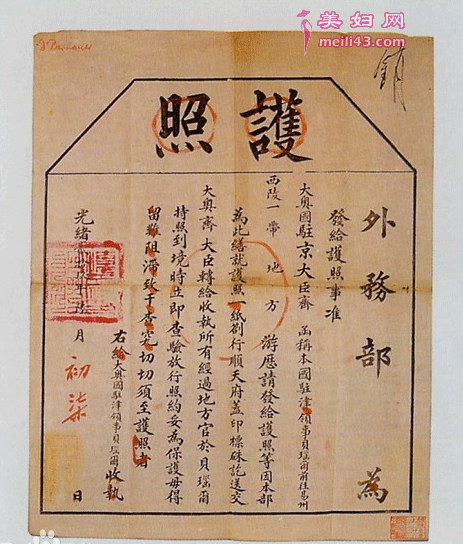 美妇网
meili43.com
銷
護照
外務部 為
發給護照事准
大奧國駐京大臣齊 函稱本國駐津領事貝瑙爾前往易州
西陵一帶地方 游歷請發給護照等因本部
為此繕就護照一紙劄行順天府蓋印標硃訖送交
大奧齊大臣轉給收執所有經過地方官於貝瑙爾
持照到境時立即查驗放行照約妥為保護毋得
留難阻滯致干查究切切須至護照者
右給大奧國駐津領事貝瑙爾收執
光緒 月初柒日